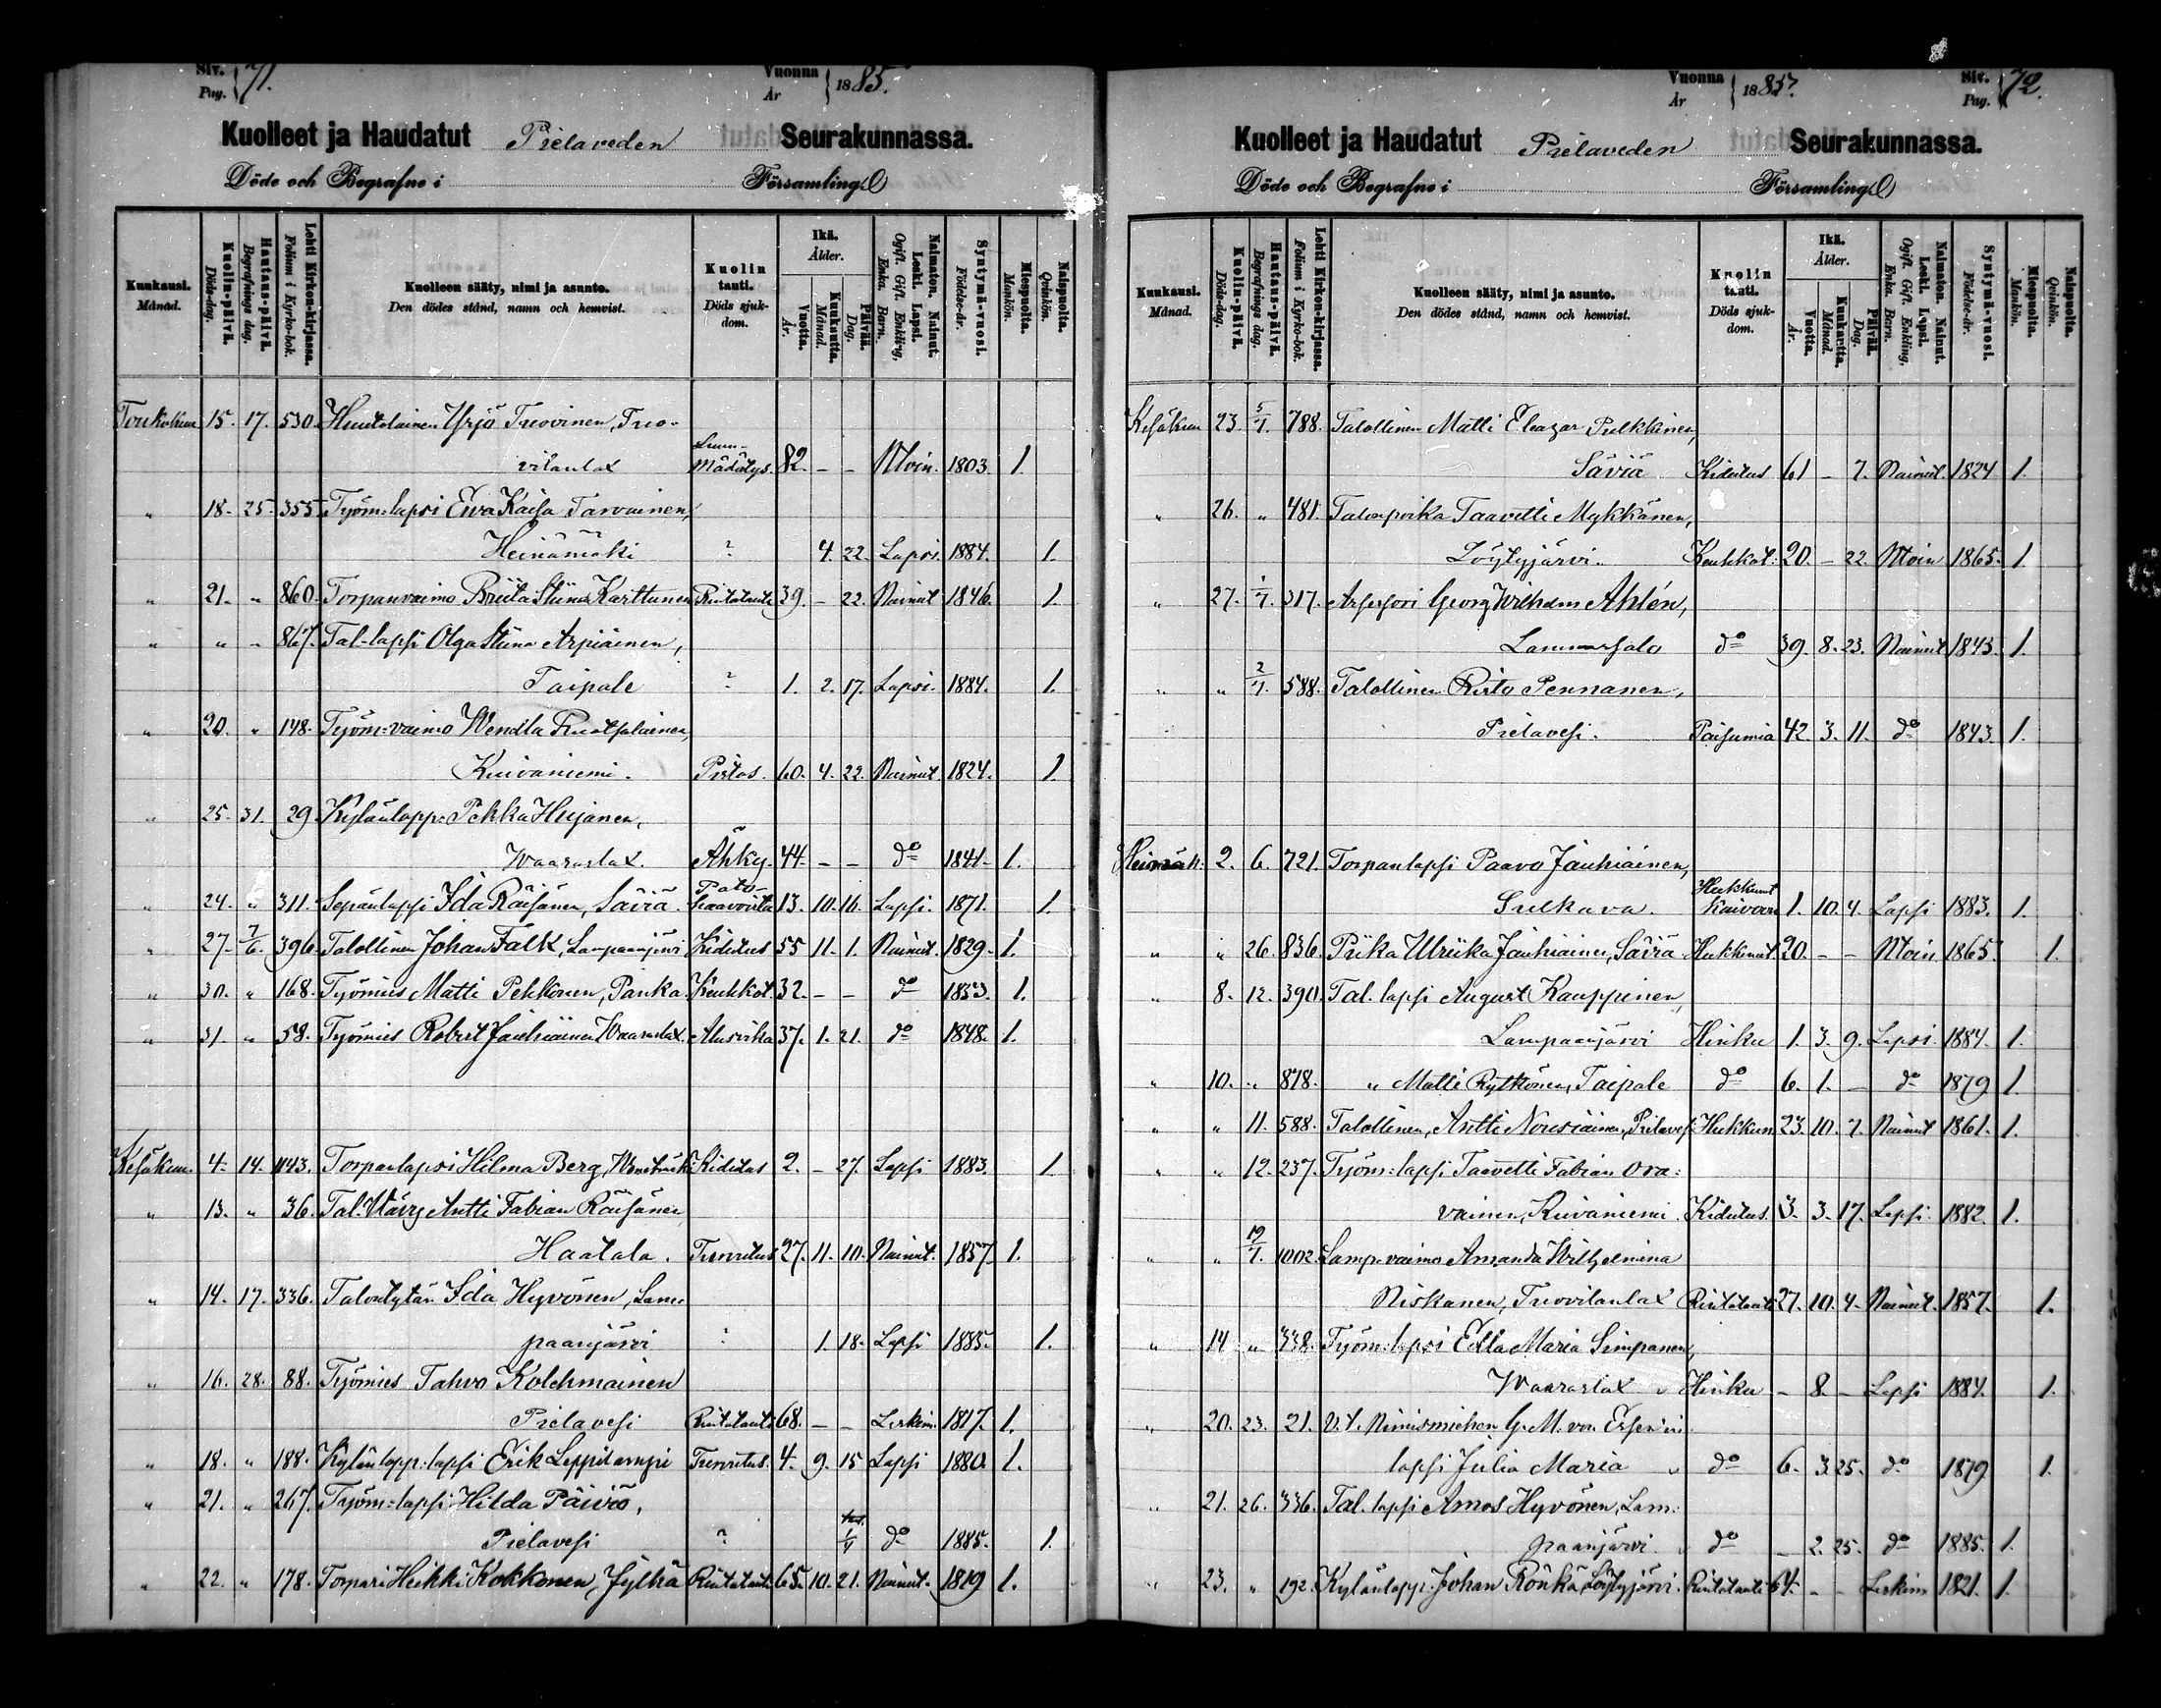 Siv. Pag. 71.
Vuonna År 1885.
Kuolleet ja Haudatut Pielaveden Seurakunnassa.
Döde och Begrafne i Församling
Kuukausi. Månad.
Kuolin-päivä. Döds-dag.
Hautaus-päivä. Begrafnings dag.
Lehti Kirkon-kirjassa. Folium i Kyrko-bok.
Kuolleen sääty, nimi ja asunto. Den dödes stånd, namn och hemvist.
Kuolin tauti. Döds sjuk-dom.
Ikä. Ålder.
Vuotta. År.
Kuukautta. Månad.
Päivää. Dag.
Naimaton. Nainut. Leski. Lapsi. Ogift. Gift. Enkling, Enka. Barn.
Syntymä-vuosi. Födelse-år.
Miespuolta. Mankön.
Naispuolta. Qvinkön.
Toukokuu 15. 17. 530. Yrjö Tuovinen, Tuo-
vilanlax mädätys. 82. - - 1803. 1.
" 18. 25. 355. Työm: lapsi Ewa Kaisa Tarvainen,
Heinämäki ? 4. 22. Lapsi. 1884. 1.
" 21. " 860. Torpanvaimo Briita Stiina Karttunen Rintatauti 39. - 22. Nainut 1846. 1.
" " " 867. Tal-lapsi Olga Stiina Arpiainen,
Taipale ? 1. 2. 17. Lapsi. 1884. 1.
" 20. " 148. Työm: vaimo Wendla Ruotsalainen,
Kuivaniemi. Pistos. 60. 4. 22. Nainut. 1824. 1.
" 25. 31. 29. Kylänlapp: Pekka Hujanen,
Waaraslax. Ähky. 44. - - do 1841. 1.
" 24. " 311. Sepänlapsi Ida Räisänen, Säviä. 13. 10. 16. Lapsi. 1871. 1.
" 27. 7/6. 396. Talollinen Johan Falk, Lampaanjärvi Kidutus 55 11. 1. Nainut. 1829. 1.
" 30. " 168. Työmies Matti Pekkonen, Panka. Keuhkot. 32. - - do 1853. 1.
" 31. " 58. Työmies Robert Jauhiainen, Waaraslax. 37. 1. 21. do 1848. 1.
Kesäkuu. 4. 14. 1143. Torpanlapsi Hilma Berg, Kidutus 2. - 27. Lapsi 1883. 1.
" 13. " 36. Tal. Wävy Antti Fabian Räisänen
Haatala. Turvotus 27. 11. 10. Nainut. 1857. 1.
" 14. 17. 336. Talontytär Ida Hyvönen, Lam-
paanjärvi ? 1. 18. Lapsi 1885. 1.
" 16. 28. 88. Työmies Tahvo Kolehmainen
Pielavesi Rintatauti 68. - - Leskim. 1817. 1.
" 18. " 188. Kylänlapp: lapsi Erik Leppilampi Turvotus. 4. 9. 15 Lapsi 1880. 1.
" 21. " 267. Työm: lapsi Hilda Päiviö,
Pielavesi ? do 1885. 1.
" 22. " 178. Torpari Heikki Kokkonen, Jylhä Rintatauti 65. 10. 21. Nainut. 1819 1.
Siv. Pag. 72.
Vuonna År 1885.
Kuolleet ja Haudatut Pielaveden Seurakunnassa.
Döde och Begrafne i Församling
Kuukausi. Månad.
Kuolin-päivä. Döds-dag.
Hautaus-päivä. Begrafnings dag.
Lehti Kirkon-kirjassa. Folium i Kyrko-bok.
Kuolleen sääty, nimi ja asunto. Den dödes stånd, namn och hemvist.
Kuolin tauti. Döds sjuk-dom.
Ikä. Ålder.
Vuotta. År.
Kuukautta. Månad.
Päivää. Dag.
Naimaton. Nainut. Leski. Lapsi. Ogift. Gift. Enkling, Enka. Barn.
Syntymä-vuosi. Födelse-år.
Miespuolta. Mankön.
Naispuolta. Qvinkön.
Kesäkuu 23. 5/7. 788. Talollinen Matti Eleazar Pulkkinen,
Säviä Kidutus 61 - 7. Nainut. 1824 1.
" 26. " 481. Talonpoika Taavetti Mykkänen,
Löytyjärvi. Keuhkot. 20. - 22. 1865. 1.
" 27. 1/7. 317. Assessori Georg Wilhelm Ahlén,
Lammassalo do 39. 8. 23. Nainut 1845. 1.
" " 2/7. 588. Talollinen Risto Pennanen,
Pielavesi. Paisumia 42. 3. 11. do 1843. 1.
Heinäk: 2. 6. 721. Torpanlapsi Paavo Jauhiainen,
Sulkava. Hukkunut kaivoon 1. 10. 4. Lapsi 1883. 1.
" " 26. 836. Piika Ulriika Jauhiainen, Säviä Hukkunut. 20. - - 1865. 1.
" 8. 12. 390. Tal. lapsi August Kauppinen,
Lampaanjärvi Hinku 1. 3. 9. Lapsi. 1884. 1.
" 10. " 878. " Matti Rytkönen, Taipale do 6. 1. - do 1879 1.
" " 11. 588. Talollinen, Antti Nousiainen, Pielavesi Hukkun. 23. 10. 7. Nainut 1861. 1.
" " 12. 237. Työm: lapsi Taavetti Fabian Ora-
vainen, Kuivaniemi. Kidutus. 3. 3. 17. Lapsi. 1882. 1.
" " 19/7. 1002. Lamp. vaimo Amanda Wilhelmina
Niskanen, Tuovilanlax Rintatauti 27. 10. 4. Nainut. 1857. 1.
" 14 " 338. Työm: lapsi Edla Maria Simpanen,
Waaraslax Hinku - 8. - Lapsi 1884. 1.
" 20. 23. 21. V.t. Nimismiehen G. M. von
lapsi Julia Maria do 6. 3. 25. do 1879 1.
" 21. 26. 336. Tal. lapsi Amos Hyvönen, Lam:
paanjärvi. do - 2. 25. do 1885. 1.
" 23. " 192. Kylänlapp: Johan Rönkä, Löytyjärvi. Rintatauti 64. - - Leskim 1821. 1.